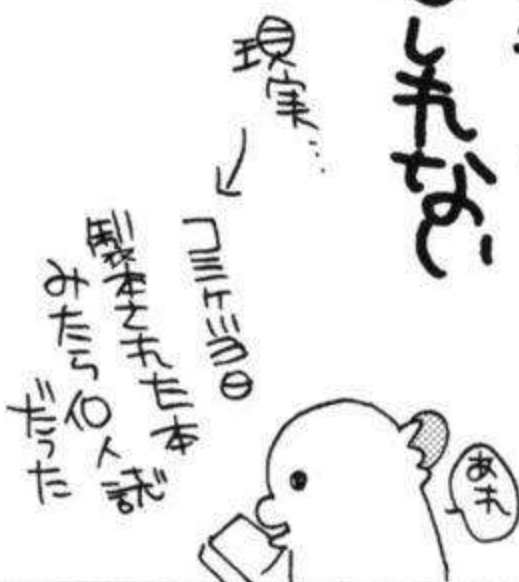 しれない
現実…
コミケ当日
製本された本
みたら個人誌
だった
あれ